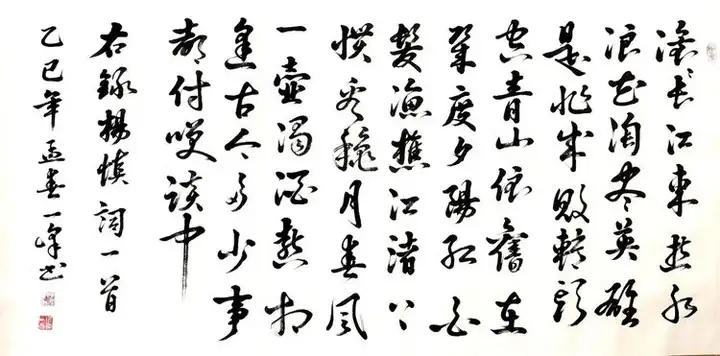 滚〻長江東逝水
浪花淘盡英雄
是非成敗轉頭
空青山依舊在
幾度夕陽紅白
髮漁樵江渚上
慣看穐月春風
一壺濁酒喜相
逢古今多少事
都付咲談中
右録楊慎詞一首
乙巳年孟春一峰书